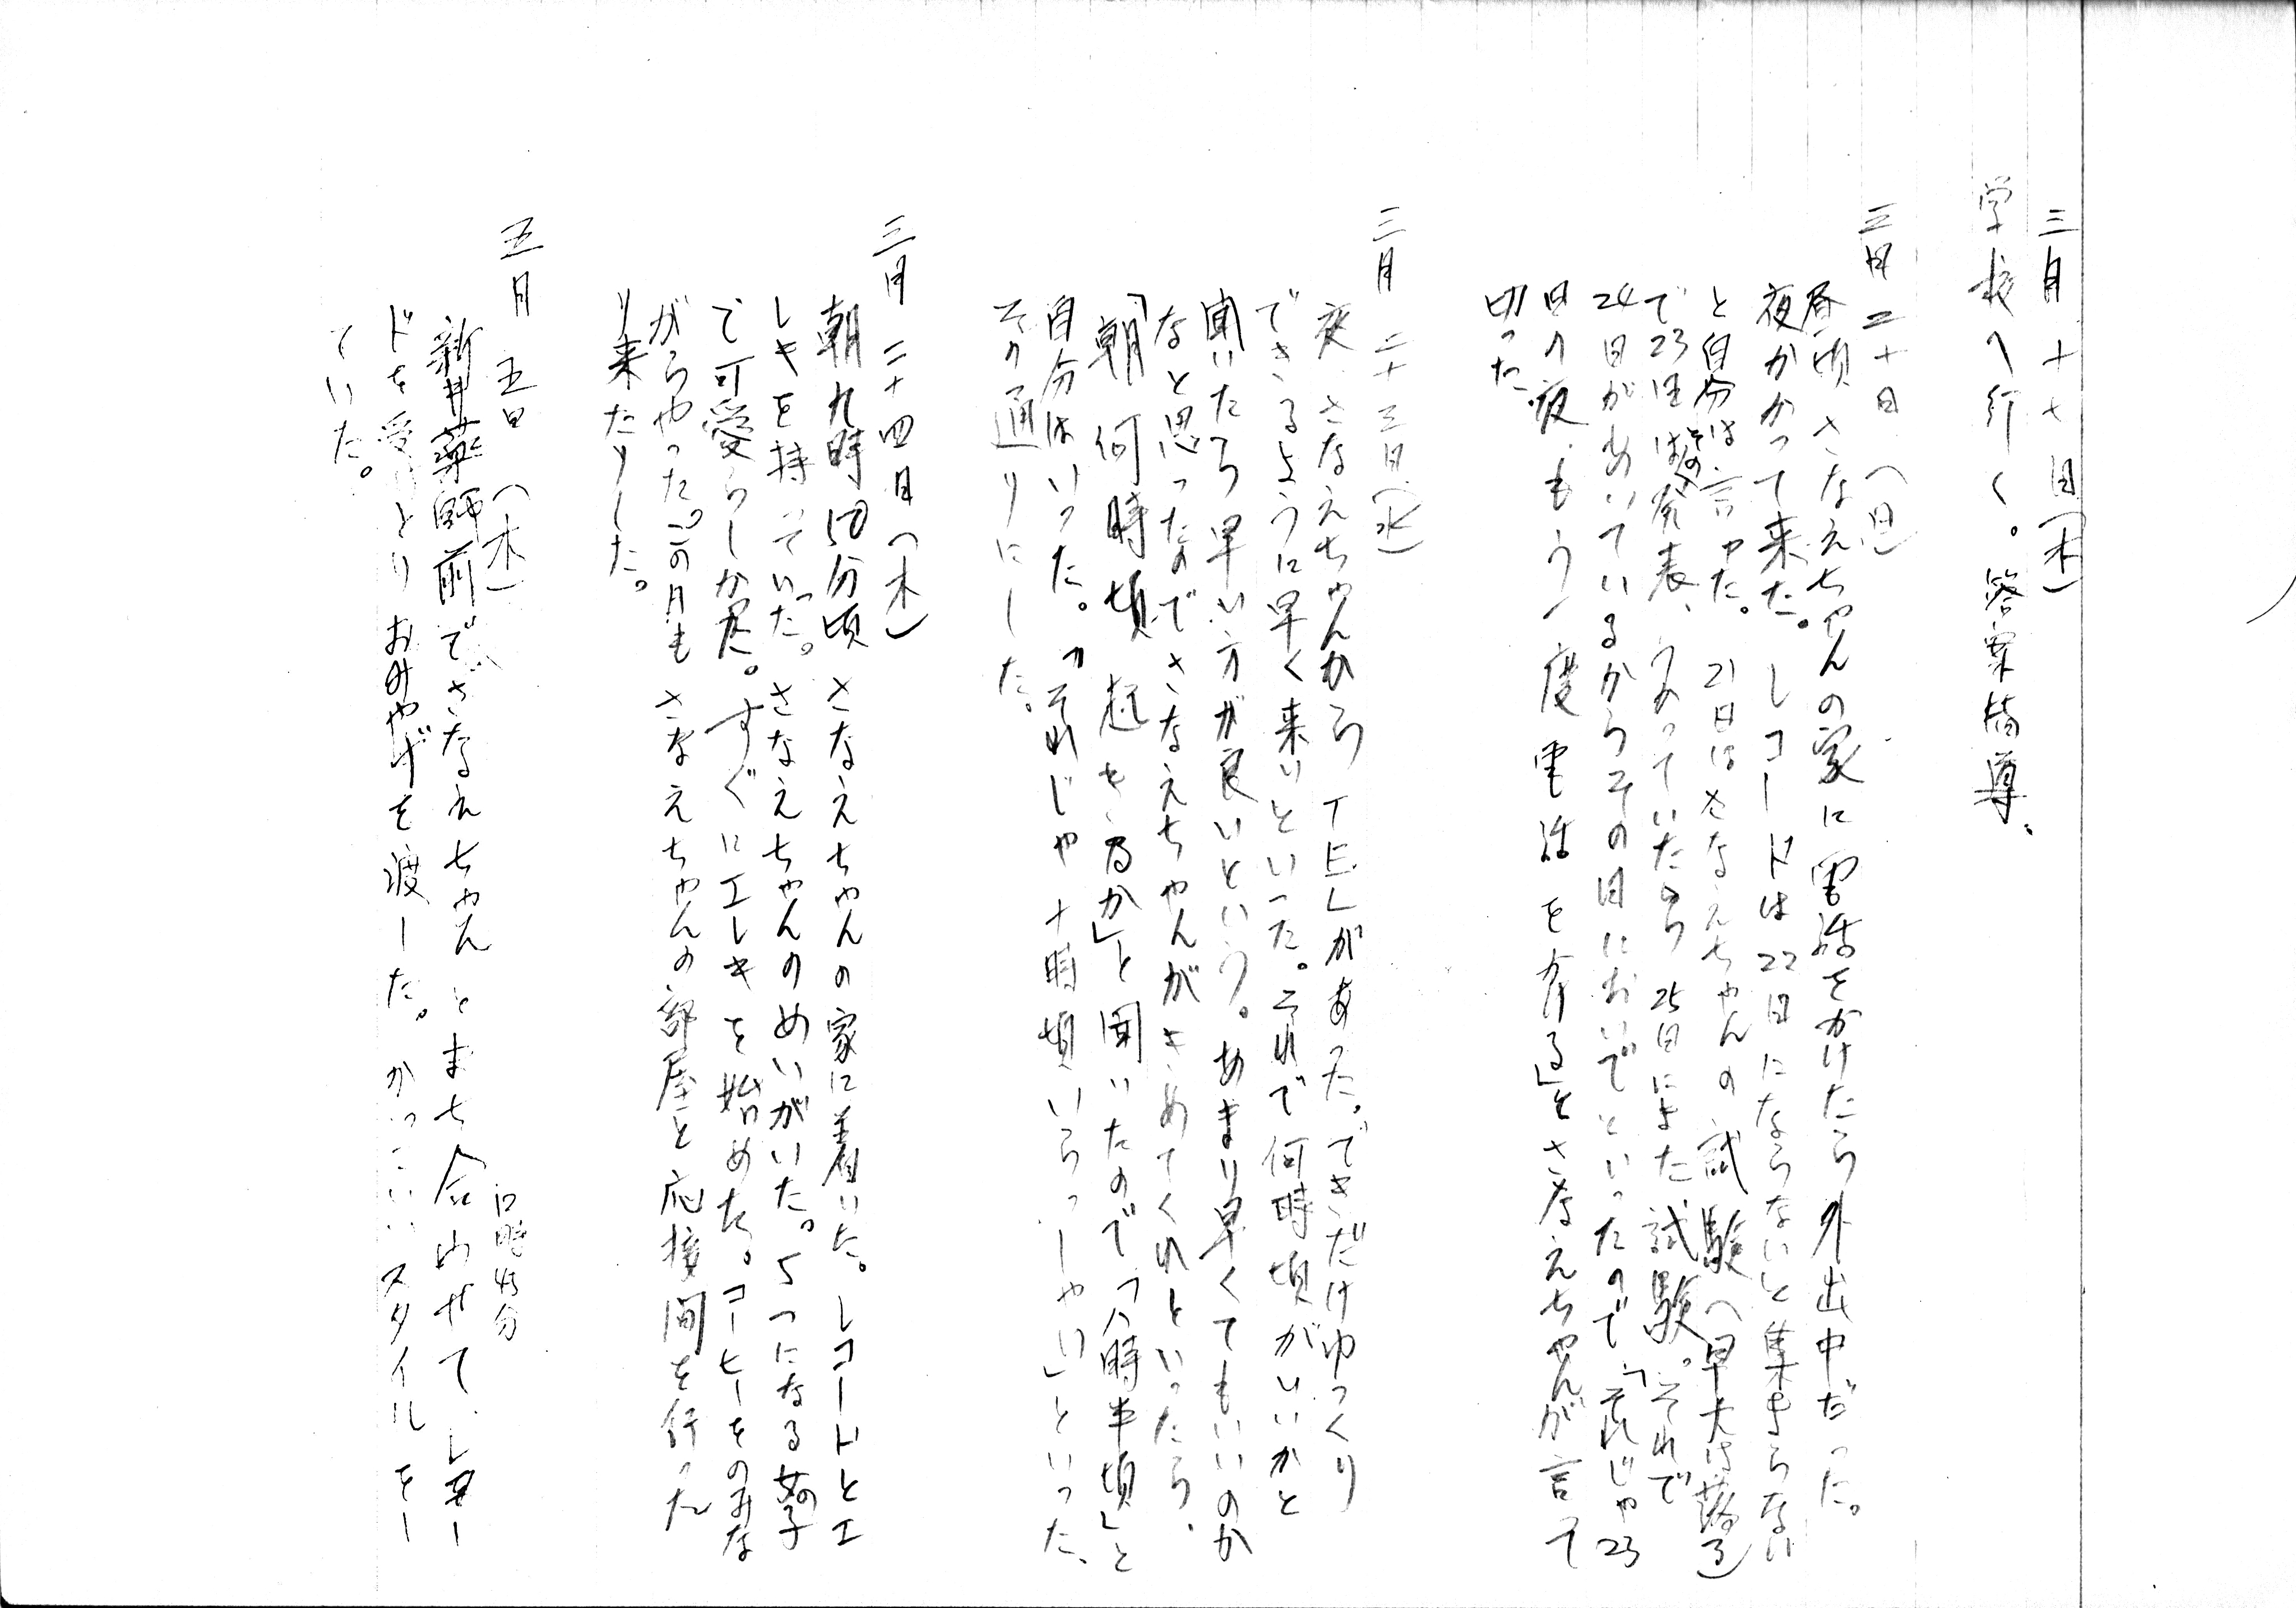 三月十七日（木）
学校へ行く。答案指導、
三月二十日（日）
昼頃さなえちゃんの家に電話をかけたら外出中だった。
夜かかって来た。レコードは22日にならないと集まらない
と自分は言った。21日はさなえちゃんの試験（早大は落る）
で23日はその発表、うかっていたら25日にまた試験。それで
24日があいているからその日においでといったので、「それじゃ23
日の夜、もう一度電話をかける」とさなえちゃんが言って
切った
三月二十三日（水）
夜、さなえちゃんからTELがあった。できだけゆっくり
できるように早く来いといった。それで何時頃がいいかと
聞いたら早い方が良いという。あまり早くてもいいのか
なと思ったのでさなえちゃんがきめてくれといったら、
「朝何時頃起きるか」と聞いたので「八時半頃」と
自分はいった。「それじゃ十時頃いらっしゃい」といった、
その通りにした。
三月二十四日（木）
朝九時50分頃さなえちゃんの家に着いた。レコードとエ
レキを持っていった。さなえちゃんのめいがいた。5つになる女の子
で可愛らしかった。すぐにエレキを始めた。コーヒーをのみな
がらやった。この月もさなえちゃんの部屋と応接間を行った
り来たりした。
五月五日（木）
口時45分
新井薬師前でさなえちゃんとまち合わせて、レコー
ドを受けとりおみやげを渡した。かっこいいスタイルをし
ていた。